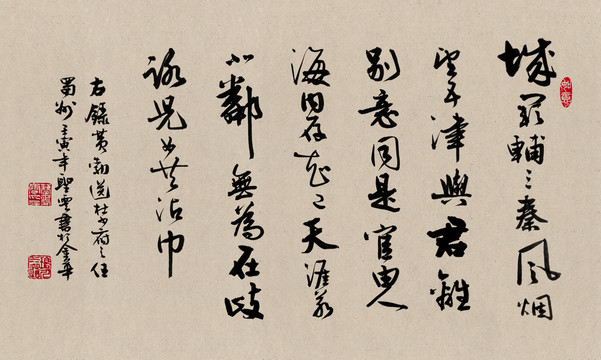 城闕輔三秦風烟
望五津與君離
别意同是宦遊人
海内存知己天涯若
比鄰無為在歧
路兒女共沾巾
右錄勃送杜少府之任
蜀州壬寅年聖雲書於金華